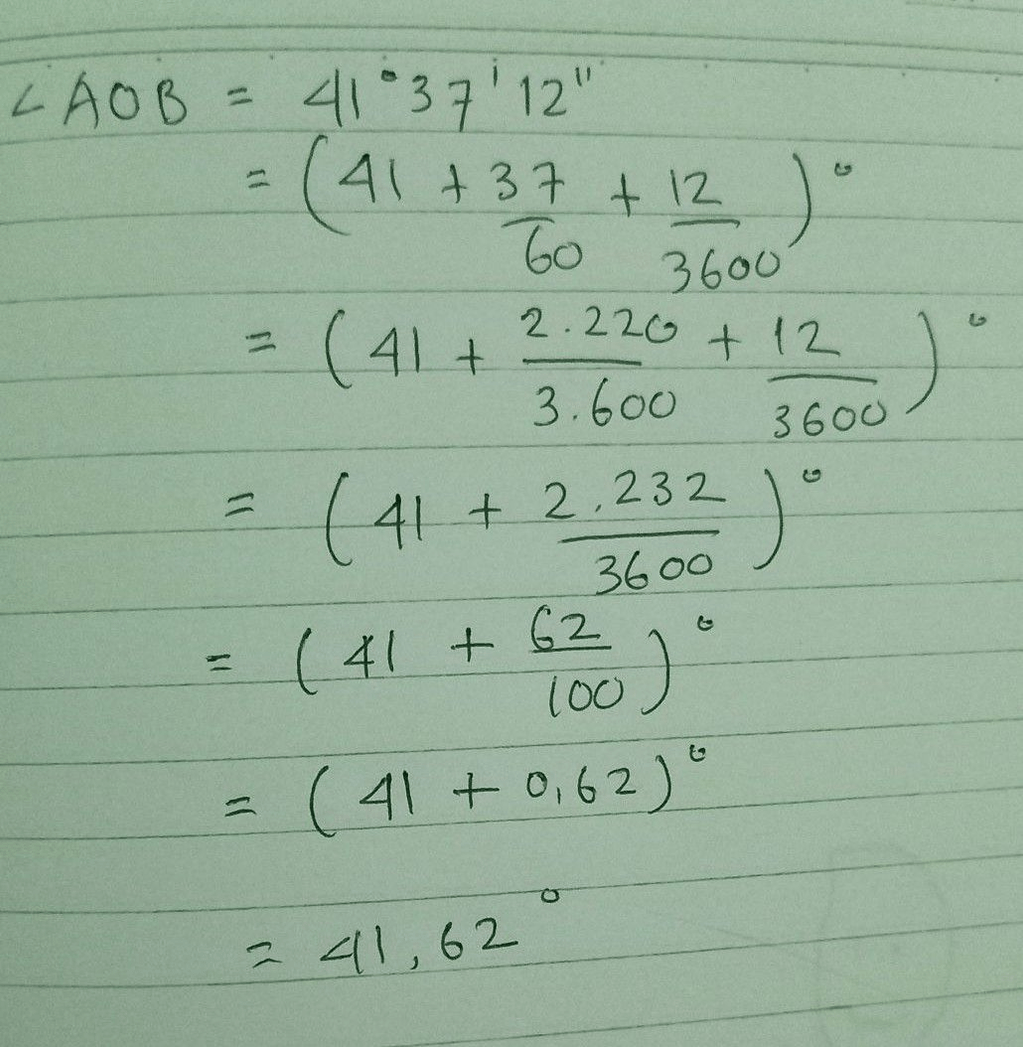 ∠AOB = 41°37'12"
= (41 + 37/60 + 12/3600)°
= (41 + 2.220/3.600 + 12/3600)°
= (41 + 2.232/3600)°
= (41 + 62/100)°
= (41 + 0,62)°
= 41,62°